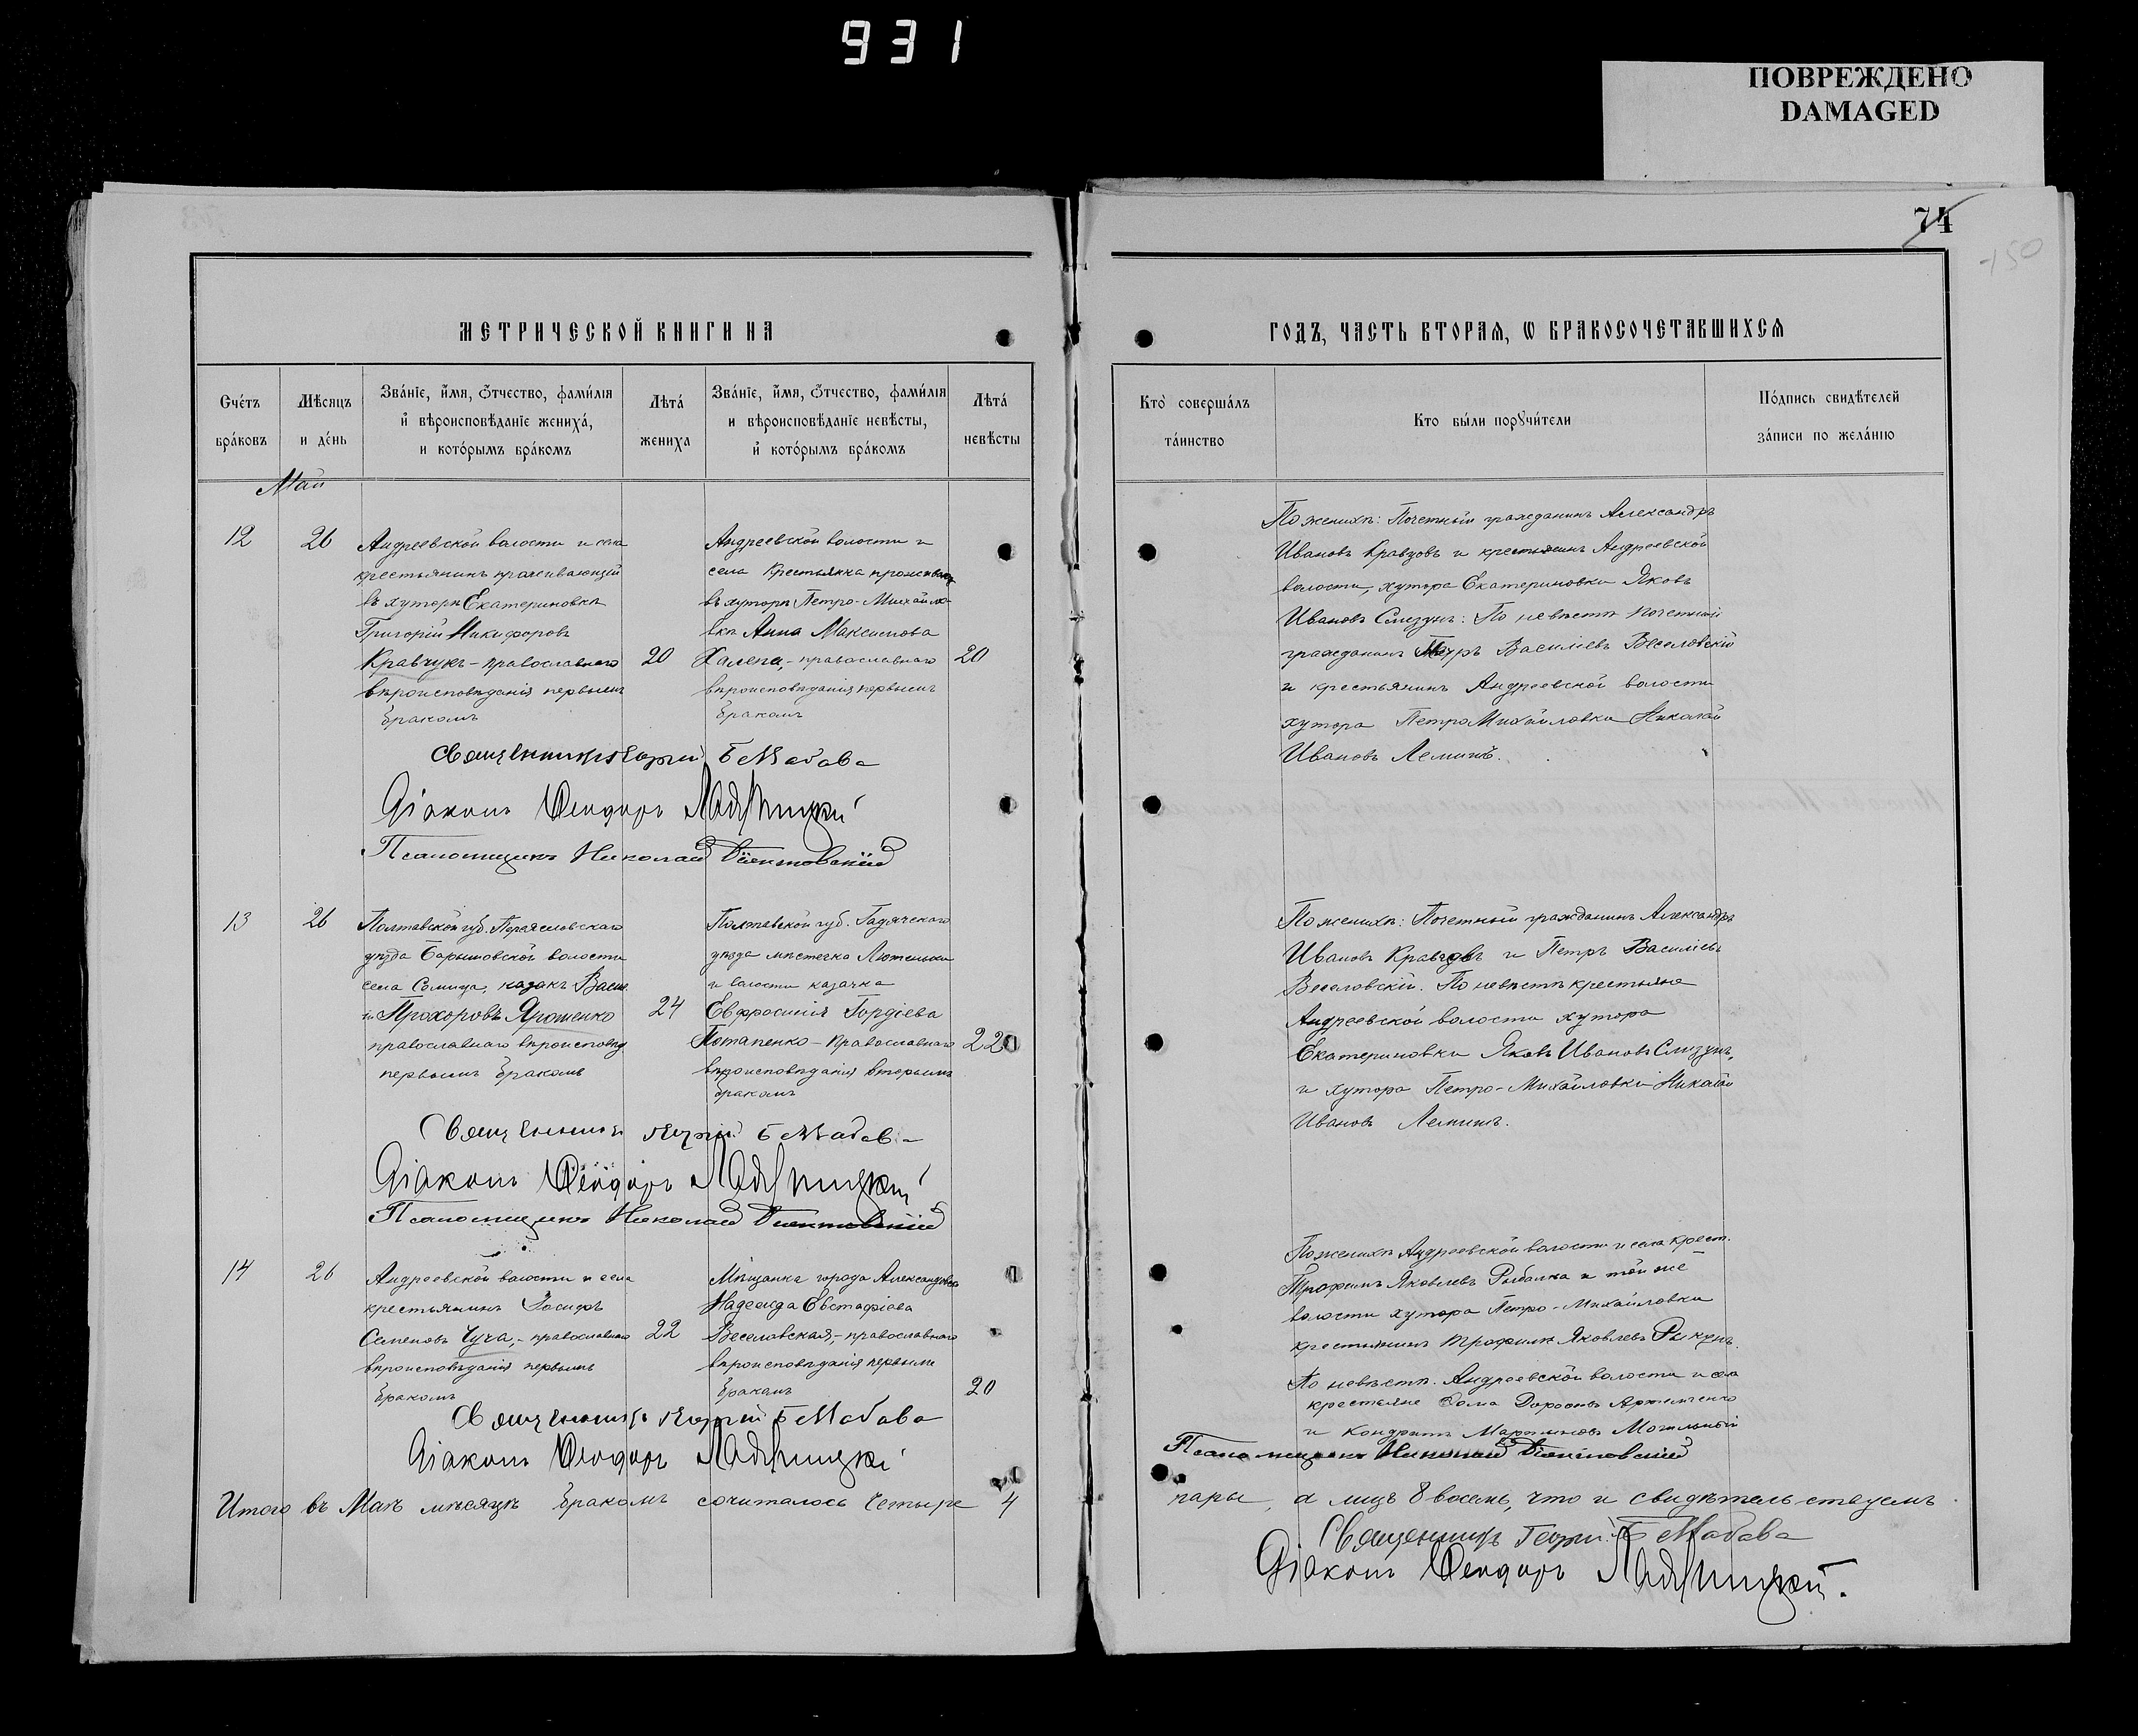 931
ПОВРЕЖДЕНО
DAMAGED
74
150
МЕТРИЧЕСКОЙ КНИГИ НА
ГОДЪ, ЧАСТЬ ВТОРАЯ, Ѡ БРАКОСОЧЕТАВШИХСЯ
Счетъ браковъ
Мѣсяцъ и день
Званіе, имя, отчество, фамилія и вѣроисповѣданіе жениха, и которымъ бракомъ
Лѣта жениха
Званіе, имя, отчество, фамилія и вѣроисповѣданіе невѣсты, и которымъ бракомъ
Лѣта невѣсты
Кто совершалъ таинство
Кто были поручители
Подпись свидѣтелей записи по желанію
Май
12
26
Андреевской волости и села
крестьянинъ проживающій
въ хуторѣ Екатериновкѣ
Григорій Никифоровъ
Кравчукъ - православнаго
вѣроисповѣданія первымъ
бракомъ
20
Андреевской волости и
села крестьянка прожив
въ хуторѣ Петро-Михайло-
вкѣ Анна Максимова
Халепа, - православнаго
вѣроисповѣданія первымъ
бракомъ
20
По женихѣ: Почетный гражданинъ Александръ
Ивановъ Кравцовъ и крестьянинъ Андреевской
волости, хутора Екатериновки Яковъ
Ивановъ Слизунъ: По невѣстѣ почетный
гражданинъ Петръ Василіевъ Веселовскій
и крестьянинъ Андреевской волости
хутора Петро Михайловки Николай
Ивановъ Леминъ.
Священникъ Георгій
Діаконъ Ѳеодоръ
Псаломщикъ Николай
13
26
Полтавской губ. Переяславскаго
уѣзда Барышовской волости
села Селища, казакъ Васи
ій Прохоровъ Ярошенко
православнаго вѣроисповѣд
первымъ бракомъ
24
Полтавской губ. Гадячскаго
уѣзда мѣстечка Лютеньки
и волости казачка
Евфросинія Гордіева
Потапенко - православнаго
вѣроисповѣданія вторымъ
бракомъ
22
По женихѣ: Почетный гражданинъ Александръ
Ивановъ Кравцовъ и Петръ Василіевъ
Веселовскій. По невѣстѣ крестьяне
Андреевской волости хутора
Екатериновки Яковъ Ивановъ Слизунъ,
и хутора Петро-Михайловки Николай
Ивановъ Леминъ.
Священникъ Георгій
Діаконъ Ѳеодоръ
Псаломщикъ Николай
14
26
Андреевской волости и села
крестьянинъ Іосифъ
Семеновъ Чуча, - православнаго
вѣроисповѣданія первымъ
бракомъ
22
Мѣщанка города Александровска
Надежда Евстафіева
Веселовская, - православнаго
вѣроисповѣданія первымъ
бракомъ
20
По женихѣ Андреевской волости и села крест.
Трофимъ Яковлевъ Рыбалка и той же
волости хутора Петро-Михайловки
крестьянинъ Трофимъ Яковлевъ
По невѣстѣ. Андреевской волости и села
крестьяне Ѳома Дороѳ Артеменко
и Кондратъ Мартиновъ Могильный
Священникъ Георгій
Діаконъ Ѳеодоръ
Псаломщикъ Николай
Итого въ Маѣ мѣсяцѣ бракомъ сочиталось четыре 4
пары, а лицъ 8 восемь, что и свидѣтельствуемъ
Священникъ Георгій
Діаконъ Ѳеодоръ